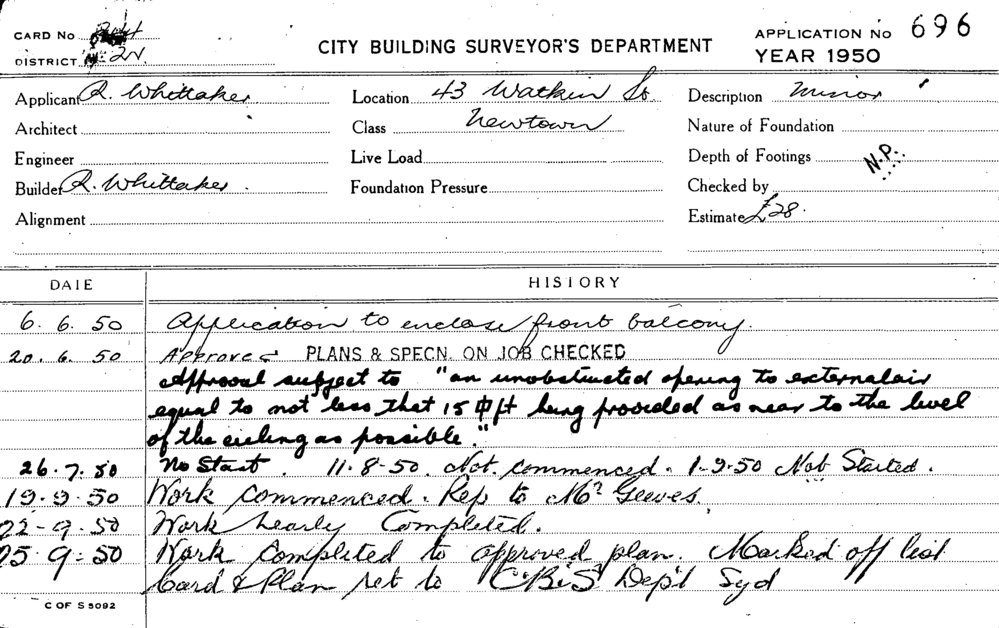 CARD No
DISTRICT 2N.
CITY BUILDING SURVEYOR'S DEPARTMENT
APPLICATION No 696
YEAR 1950
Applicant R. Whittaker
Location 43 Watkin St.
Description Minor
Architect
Class Newtown
Nature of Foundation
Engineer
Live Load
Depth of Footings N.P.
Builder R. Whittaker.
Foundation Pressure
Checked by
Alignment
Estimate £28.
DATE HISTORY
6. 6. 50 Application to enclose front balcony.
20. 6. 50 Approved PLANS & SPECN. ON JOB CHECKED
Approval subject to "an unobstructed opening to external air
equal to not less that 15 ft being provided as near to the level
of the ceiling as possible."
26. 7. 50 No Start. 11-8-50. Not commenced. 1-9-50 Not Started.
19. 9. 50 Work Commenced. Rep to Mr Geeves.
22-9-50 Work nearly Completed.
25. 9. 50 Work Completed to approved plan. Marked off list
Card & Plan ret to C.B.S. Dep't Syd
C OF S 5092